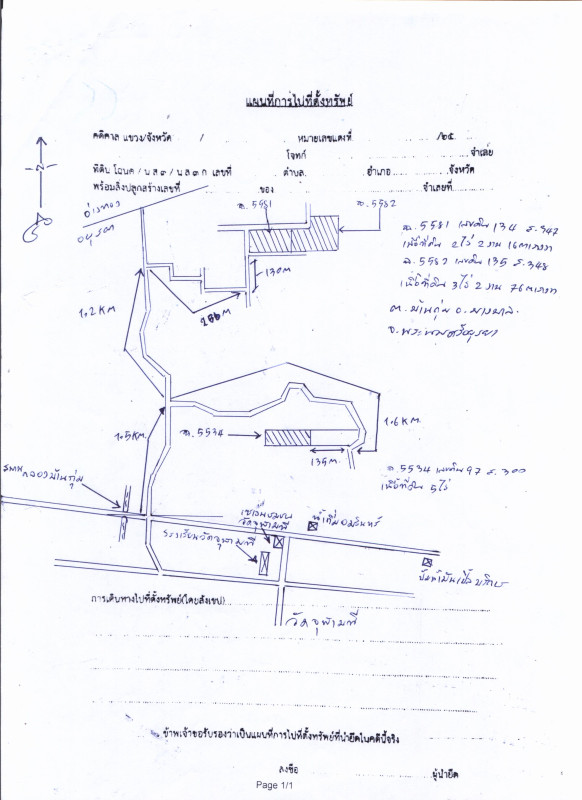 แผนที่การไปที่ตั้งทรัพย์
คดีศาล แขวง/จังหวัด / หมายเลขแดงที่ /๒๕
โจทก์ จำเลย
ที่ดิน โฉนด / น.ส ๓ / น.ส ๓ ก เลขที่ ตำบล อำเภอ จังหวัด
พร้อมสิ่งปลูกสร้างเลขที่ ของ จำเลขที่
N
อ่างทอง
อยุธยา
ฉ. 5581
ฉ. 5582
ฉ. 5581 เลขดิน 134 ร. 347
เนื้อที่ดิน 2 ไร่ 2 งาน 16 ตารางวา
ฉ. 5582 เลขดิน 135 ร. 348
เนื้อที่ดิน 3 ไร่ 2 งาน 76 ตารางวา
ต. บ้านกุ่ม อ. บางบาล
จ. พระนครศรีอยุธยา
130 M
1.2 KM
M
1.5 KM.
ฉ. 5534
1.6 KM.
135 M.
ฉ. 5534 เลขดิน 97 ร. 300
เนื้อที่ดิน 5 ไร่
คลองบ้านกุ่ม
วัดจุฬามณี
โรงเรียนวัดจุฬามณี
วัดจุฬามณี
การเดินทางไปที่ตั้งทรัพย์(โดยสังเขป)
ข้าพเจ้าขอรับรองว่าเป็นแผนที่การไปที่ตั้งทรัพย์ที่นำยึดในคดีนี้จริง
ลงชื่อ ผู้นำยึด
Page 1/1